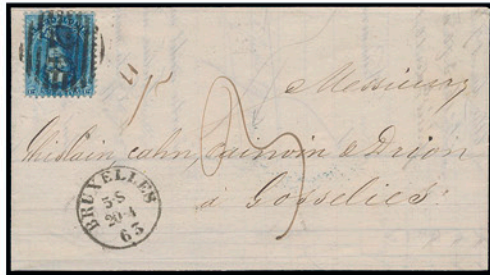 17
Messieurs
Ghislain cahn, Cauwin & Drion
à Gosselies
BRUXELLES
5-S
20-4
63